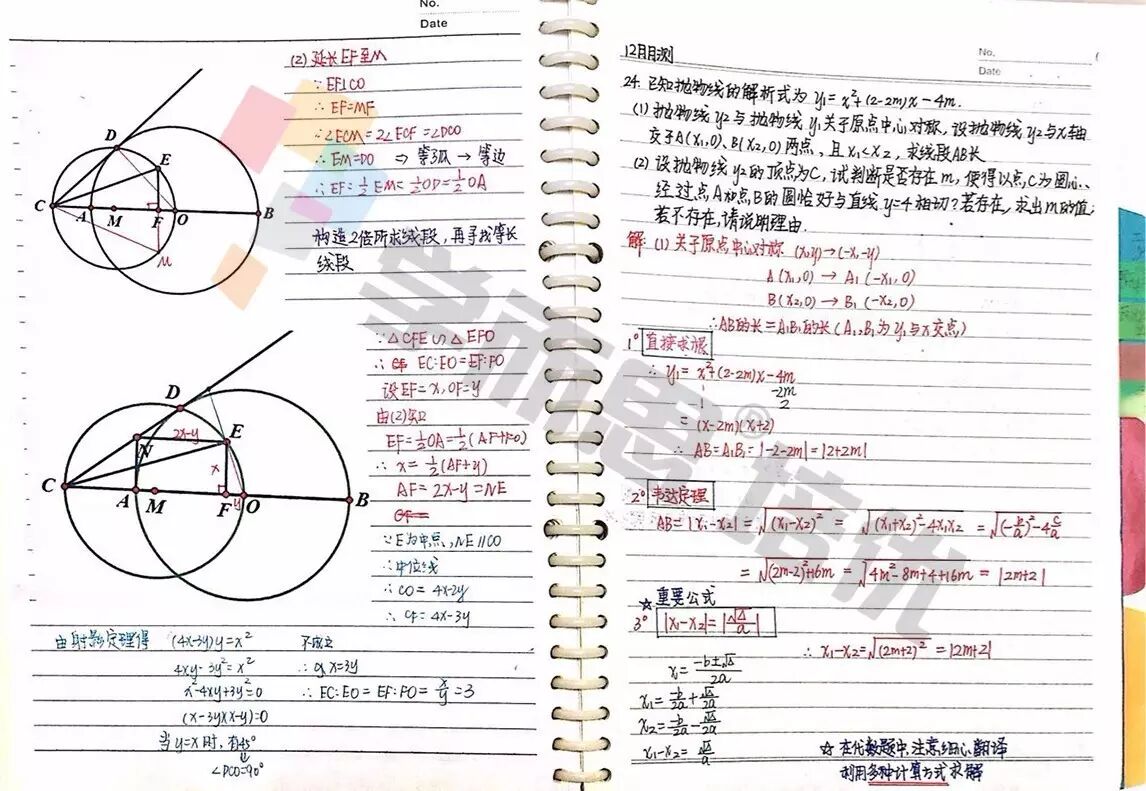 No.
Date
(2) 延长EF至M
∵EF⊥CO
∴ EF=MF
∴∠ECM=2∠ECF=∠DCO
∴ EM=DO ⇒ 等弧 → 等边
∴ EF=½EM=½OD=½OA
构造2倍所求线段,再寻找等长
线段
D
E
C
A
M
F
O
B
M
∵△CFE∽△EFO
∴ EC:EO=EF:FO
设EF=x,OF=y
由(2)知
EF=½OA=½(AF+FO)
∴ x=½(AF+y)
AF=2x-y=NE
∵E为中点,NE∥CO
∴中位线
∴CO=4x-2y
∴ CF=4x-3y
D
2x-y
N
E
x
C
A
M
F
y
O
B
由射影定理得 (4x-3y)y=x²
4xy-3y²=x²
x²-4xy+3y²=0
(x-3y)(x-y)=0
当y=x时,有45°
∠DCO=90°
不成立
∴x=3y
∴EC:EO=EF:FO=x/y=3
12月月测
No.
Date
24. 已知抛物线的解析式为y₁=x²+(2-2m)x-4m.
(1) 抛物线y₂与抛物线y₁关于原点中心对称,设抛物线y₂与x轴
交于A(x₁,0)、B(x₂,0)两点,且x₁<x₂,求线段AB长
(2) 设抛物线y₂的顶点为C,试判断是否存在m,使得以点C为圆心、
经过点A和点B的圆恰好与直线y=4相切?若存在,求出m的值;
若不存在,请说明理由.
解:(1)关于原点中心对称.(x,y)→(-x,-y)
A(x₁,0)→A₁(-x₁,0)
B(x₂,0)→B₁(-x₂,0)
∴AB的长=A₁B₁的长(A₁,B₁为y₁与x交点)
1° 直接求根
∴ y₁=x²+(2-2m)x-4m
1 -2m
1 2
=(x-2m)(x+2)
∴ AB=A₁B₁=|-2-2m|=|2+2m|
2° 韦达定理
AB=|x₁-x₂|=√(x₁-x₂)²=√(x₁+x₂)²-4x₁x₂=√(-b/a)²-4c/a
=√(2m-2)²+16m=√4m²-8m+4+16m=|2m+2|
☆ 重要公式
3° |x₁-x₂|=|√Δ/a|
∴x₁-x₂=√(2m+2)²=|2m+2|
x=(-b±√Δ)/2a
x₁=-b/2a+√Δ/2a
x₂=-b/2a-√Δ/2a
x₁-x₂=√Δ/a
☆ 在代数题中,注意细心翻译
利用多种计算方式求解
学而思®培优